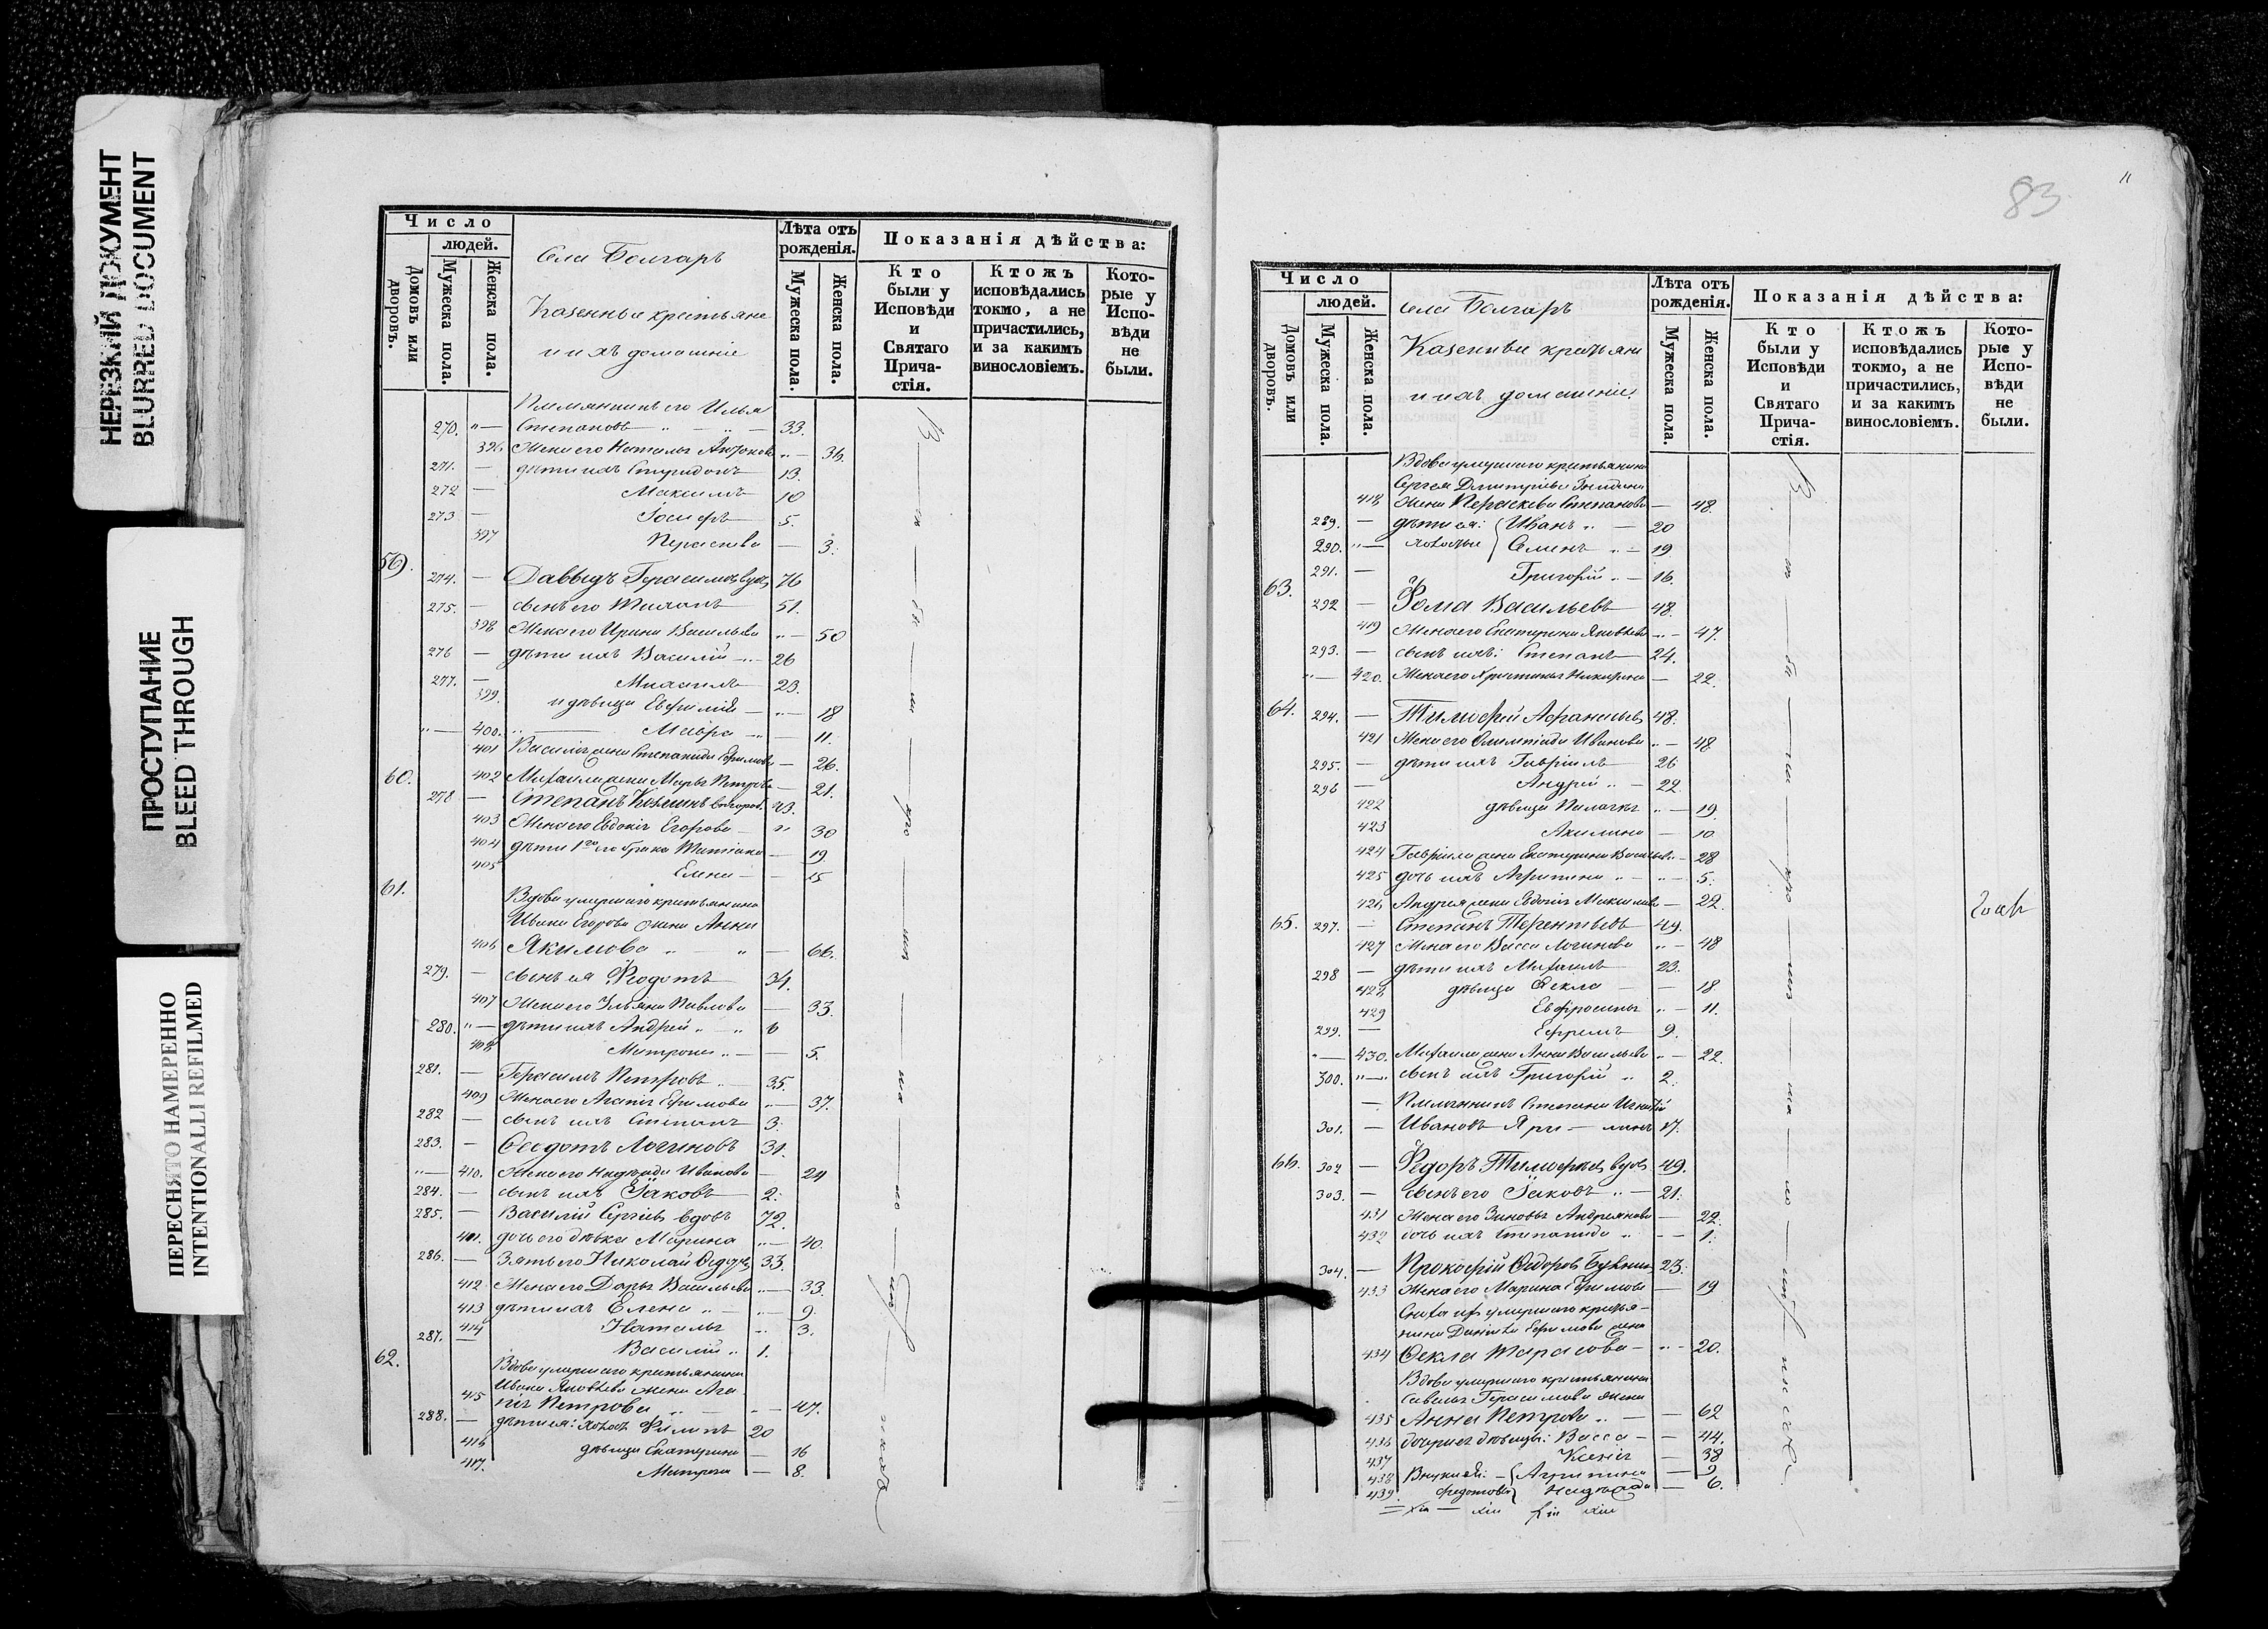 НЕРЕЗКИЙ ДОКУМЕНТ
BLURRED DOCUMENT
ПРОСТУПАНИЕ
BLEED THROUGH
ПЕРЕСНЯТО НАМЕРЕННО
INTENTIONALLI REFILMED
Число
людей.
Домовъ или дворовъ.
Мужеска пола.
Женска пола.
Села Болгаръ
Казенные крестьяне
и ихъ домашніе
Лѣта отъ рожденія.
Мужеска пола.
Женска пола.
Показанія дѣйства:
Кто были у Исповѣди и Святаго Прича-стія.
Ктожъ исповѣдались токмо, а не причастились, и за какимъ винословіемъ.
Кото-рые у Испо-вѣди не были.
Племянникъ его Илья
270. Степановъ 33.
396 Жена его Наталья 36.
271. дѣти ихъ Спиридонъ 13.
272 Максимъ 10
273 Іосифъ 5.
397 Параскева 3.
59.
274. Давыдъ Герасимовъ вдовъ 76
275. сынъ его 51.
398 Жена его Ирина Васильева 50
276 дѣти ихъ Василій 26
277. Михаилъ 23.
399. и дѣвица Евфимія 18
400. Мавра 11.
401 Василія жена Степанида Ефимова 26.
60. 402 Михаила жена Марья Петрова 21.
278 Степанъ 43.
403 Жена его Евдокія Егорова 30
404 дѣти 1го его брака Татіана 19
405 Елена 15
61.
Вдова умершаго крестьянина
Ивана Егорова жена Анна
406 Якимова 66.
279. сынъ ея Ѳеодотъ 34.
407 Жена его Ульяна Павлова 33.
280. дѣти ихъ Андрей 6
408 Матрона 5.
281. Герасимъ Петровъ 35.
409 Жена его Агапія Ефимова 37.
282 сынъ ихъ Степанъ 3.
283. Ѳеодотъ Логиновъ 31.
410. Жена его Надежда Иванова 24
284. сынъ ихъ Іаковъ 2.
285. Василій Сергіевъ вдовъ 72.
411. дочь его дѣвка Марина 40.
286. Зять его Николай 33.
412 Жена его Дарья Васильева 33.
413 дѣти ихъ Елена 9.
414 Наталья 3.
287. Василій 1.
62.
Вдова умершаго крестьянина
Ивана Яковлева жена Ага-
415 пія Петрова 47.
288. дѣти ея: холостъ Филиппъ 20
416 дѣвица Екатерина 16
417. Матрона 8.
83
11
Число
людей.
Домовъ или дворовъ.
Мужеска пола.
Женска пола.
села Болгаръ
Казенные крестьяне
и ихъ домашніе
Лѣта отъ рожденія.
Мужеска пола.
Женска пола.
Показанія дѣйства:
Кто были у Исповѣди и Святаго Прича-стія.
Ктожъ исповѣдались токмо, а не причастились, и за какимъ винословіемъ.
Кото-рые у Испо-вѣди не были.
Вдова умершаго крестьянина
Сергея Дмитріева
418 жена Параскева Степанова 48.
289. дѣти ея: Иванъ 20
290. холостые Семенъ 19
291. Григорій 16.
63.
292 Ѳома Васильевъ 48.
419 Жена его Екатерина Яковлева 47.
293. сынъ ихъ: Степанъ 24.
420. Жена его Христина 22.
64. 294. Тимоѳей Аѳанасьевъ 48.
421 Жена его Олимпіада Иванова 48
295. дѣти ихъ Гавріилъ 26
296 Андрей 22.
422 дѣвица Пелагія 19.
423 Акилина 10
424 Гавріила жена Екатерина Васильева 28
425 дочь ихъ Агрипина 5.
426 Андрея жена Евдокія Максимова 22.
65. 297. Степанъ Терентьевъ 49.
427 Жена его Васса Логинова 48
298 дѣти ихъ Михаилъ 23.
428 дѣвица Ѳекла 18
429 Евфросинья 11.
299. Ефремъ 9.
430. Михаила жена Анна Васильева 22.
300. сынъ ихъ Григорій 2.
Племянникъ Степана Игнатій
301. Ивановъ 17.
66. 302 Ѳедоръ Тимоѳеевъ вдовъ 49.
303. сынъ его Іаковъ 21.
431 Жена его Зиновья Андреянова 22.
432 дочь ихъ Степанида 1.
304. Прокофій Ѳедоровъ 23.
433 Жена его Марина Ефимова 19
Сноха ихъ умершаго кресть-
янина Ефимова жена
434 Ѳекла Тарасова 20.
Вдова умершаго крестьянина
Савелья Герасимова жена
435 Анна Петрова 62
436 дочери ея дѣвицы: Васса 44.
437 Ксенія 38
438 Внуки ей: Агрипина 9
439. Ѳедотовы Надежда 6.